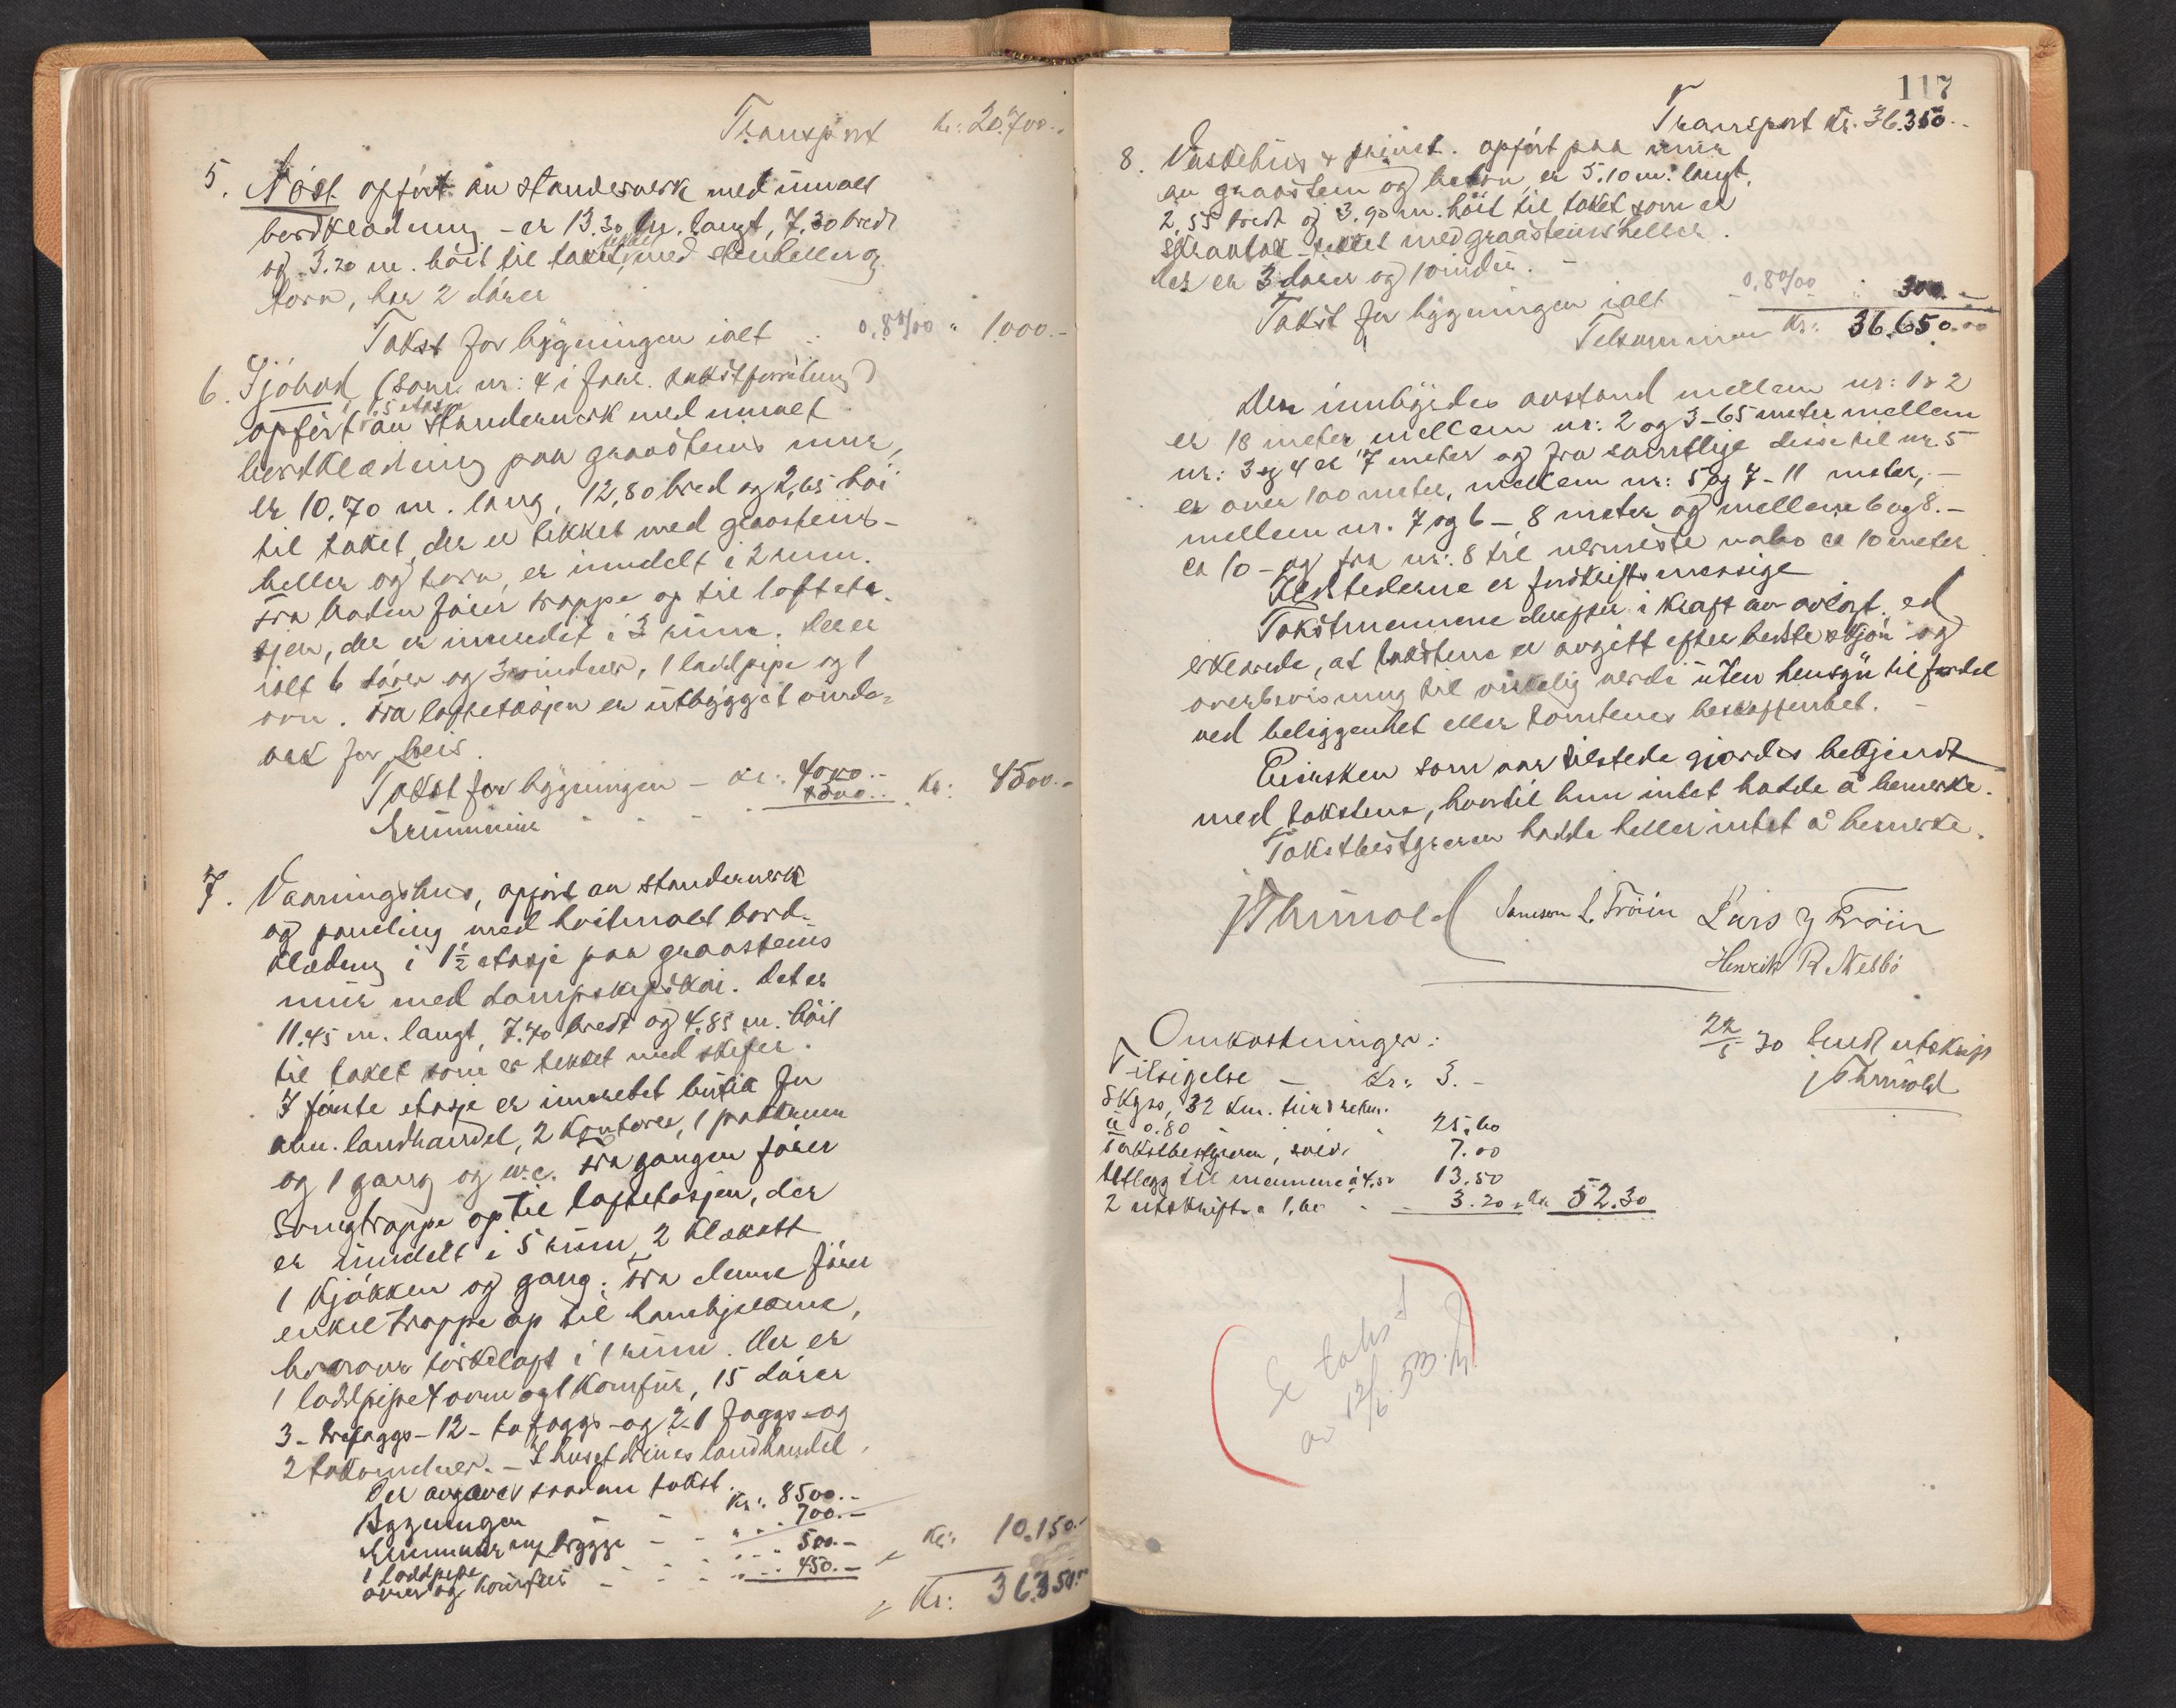 Transport kr: 20.700.-
5. Nöst opfört au standerverk med umalt
bordklædning - er 13.30 m. langt, 7.30 bredt
og 3.20 m. höit til taket, tekket med stenheller og
torv, har 2 dörer
Takst for bygningen ialt 0.8 %00 " 1000.-
6. Sjöbod (som nr: 4 i forr. takstforretning)
opfört i 1.5 etasje au standerverk med umalt
bordklædning paa graastens mur,
er 10.70 m. lang, 12,80 bred og 2,65 höi
til taket, der er tekket med graastens-
heller og torv, er inndelt i 2 rum.
Fra boden förer trappe op til lofteta-
sjen, der er innredet i 3 rum. Der er
ialt 6 dörer og 3 vinduer, 1 loddpipe og 1
ovn. Fra loftetasjen er utbygget vindu-
ark for heis.
Takst for bygningen - kr: 4000.-
Grunnmur " - - - 500.- kr: 4500.-
7. Vaaningshus, opfört au standerverk
og paneling med hvitmalt bord-
klædning i 1½ etasje paa graastens
mur med dampskipskai. Det er
11.45 m. langt, 7.40 bredt og 4.85 m. höit
til taket som er tekket med skifer.
I förste etasje er innredet butik for
alm. landhandel, 2 kontorer, 1 pakkrum
og 1 gang og w.c. Fra gangen förer
svingtrappe op til loftetasjen, der
er inndelt i 5 rum, 2 klækott
1 kjökken og gang. Fra denne förer
enkel trappe op til hanebjelkene,
hvorover törkeloft i 1 rum. Der er
1 loddpipe 4 ovner og 1 komfur, 15 dörer
3 - trefaggs - 12 - tofaggs - og 2 - 1 faggs - og
2 takvinduer. - I huset drives landhandel.
Der avgaves saadan takst.
Bygningen - - kr: 8500.-
Grunnmur og brygge - - " 700.-
1 loddpipe - - " 500.-
ovner og komfur - - - " 450.- kr: 10.150.-
Kr: 36.350.-
117
Transport kr. 36.350.-
8. Vaskehus opfört paa mur
au graasten og beton, er 5.10 m. langt,
2,55 bredt og 3.90 m. höit til taket, som er
skraatak - tekket med graastensheller.
Der er 3 dörer og 1 vindu. -
Takst for bygningen ialt - 0.8 %00 : 300.-
Tilsammen kr: 36.650.00
Den innbyrdes avstand mellem nr: 1 & 2
er 18 meter, mellem nr: 2 og 3 - 65 meter mellem
nr: 3 og 4 er 7 meter og fra samtlige disse til nr. 5
er over 100 meter, mellem nr: 5 og 7 - 11 meter, -
mellem nr. 7 og 6 - 8 meter og mellem 6 og 8. -
er 10 - og fra nr: 8 til nærmeste nabo er 10 meter
Ildstederne er forskriftsmessige
Takstmennene derefter i kraft av avlagt ed
erklærede, at takstene er avgitt efter bedste skjön og
overbevisning til virkelig verdi uten hensyn til fordel
ved beliggenhet eller tomtenes beskaffenhet. -
Eiersken som var tilstede gjordes bekjendt
med takstene, hvortil hun intet hadde å bemerke.
Takstbestyreren hadde heller intet å bemerke.
J Thunold Samson L. Fröiin Lars J Fröiin
Henrik R Nesbö
Omkostninger:
Tilsigelse - Kr: 3.-
Skyss, 32 km. tur & retur.
a 0.80 " 25.60
Takstbestyreren, " 7.00
Utlegg til mennene á 4.50 13.50
2 utskrifter a 1.60 - - 3.20 kr 52.30
22/5 30 Sendt utskrift
J Thunold
Se takst
av 12/6. 53